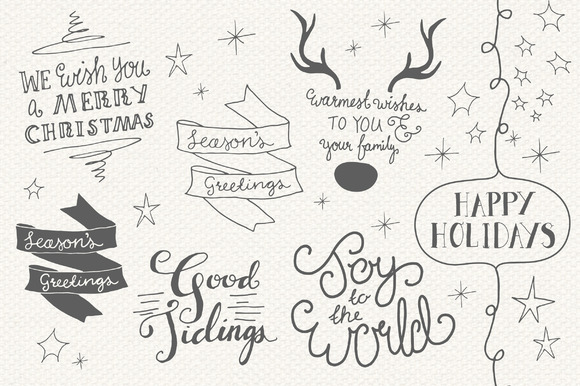 WE Wish You
a MERRY
CHRISTMAS
Season's
Greetings
Warmest wishes
TO YOU &
your family
HAPPY
HOLIDAYS
Season's
Greetings
Good
Tidings
Joy
to
the
World